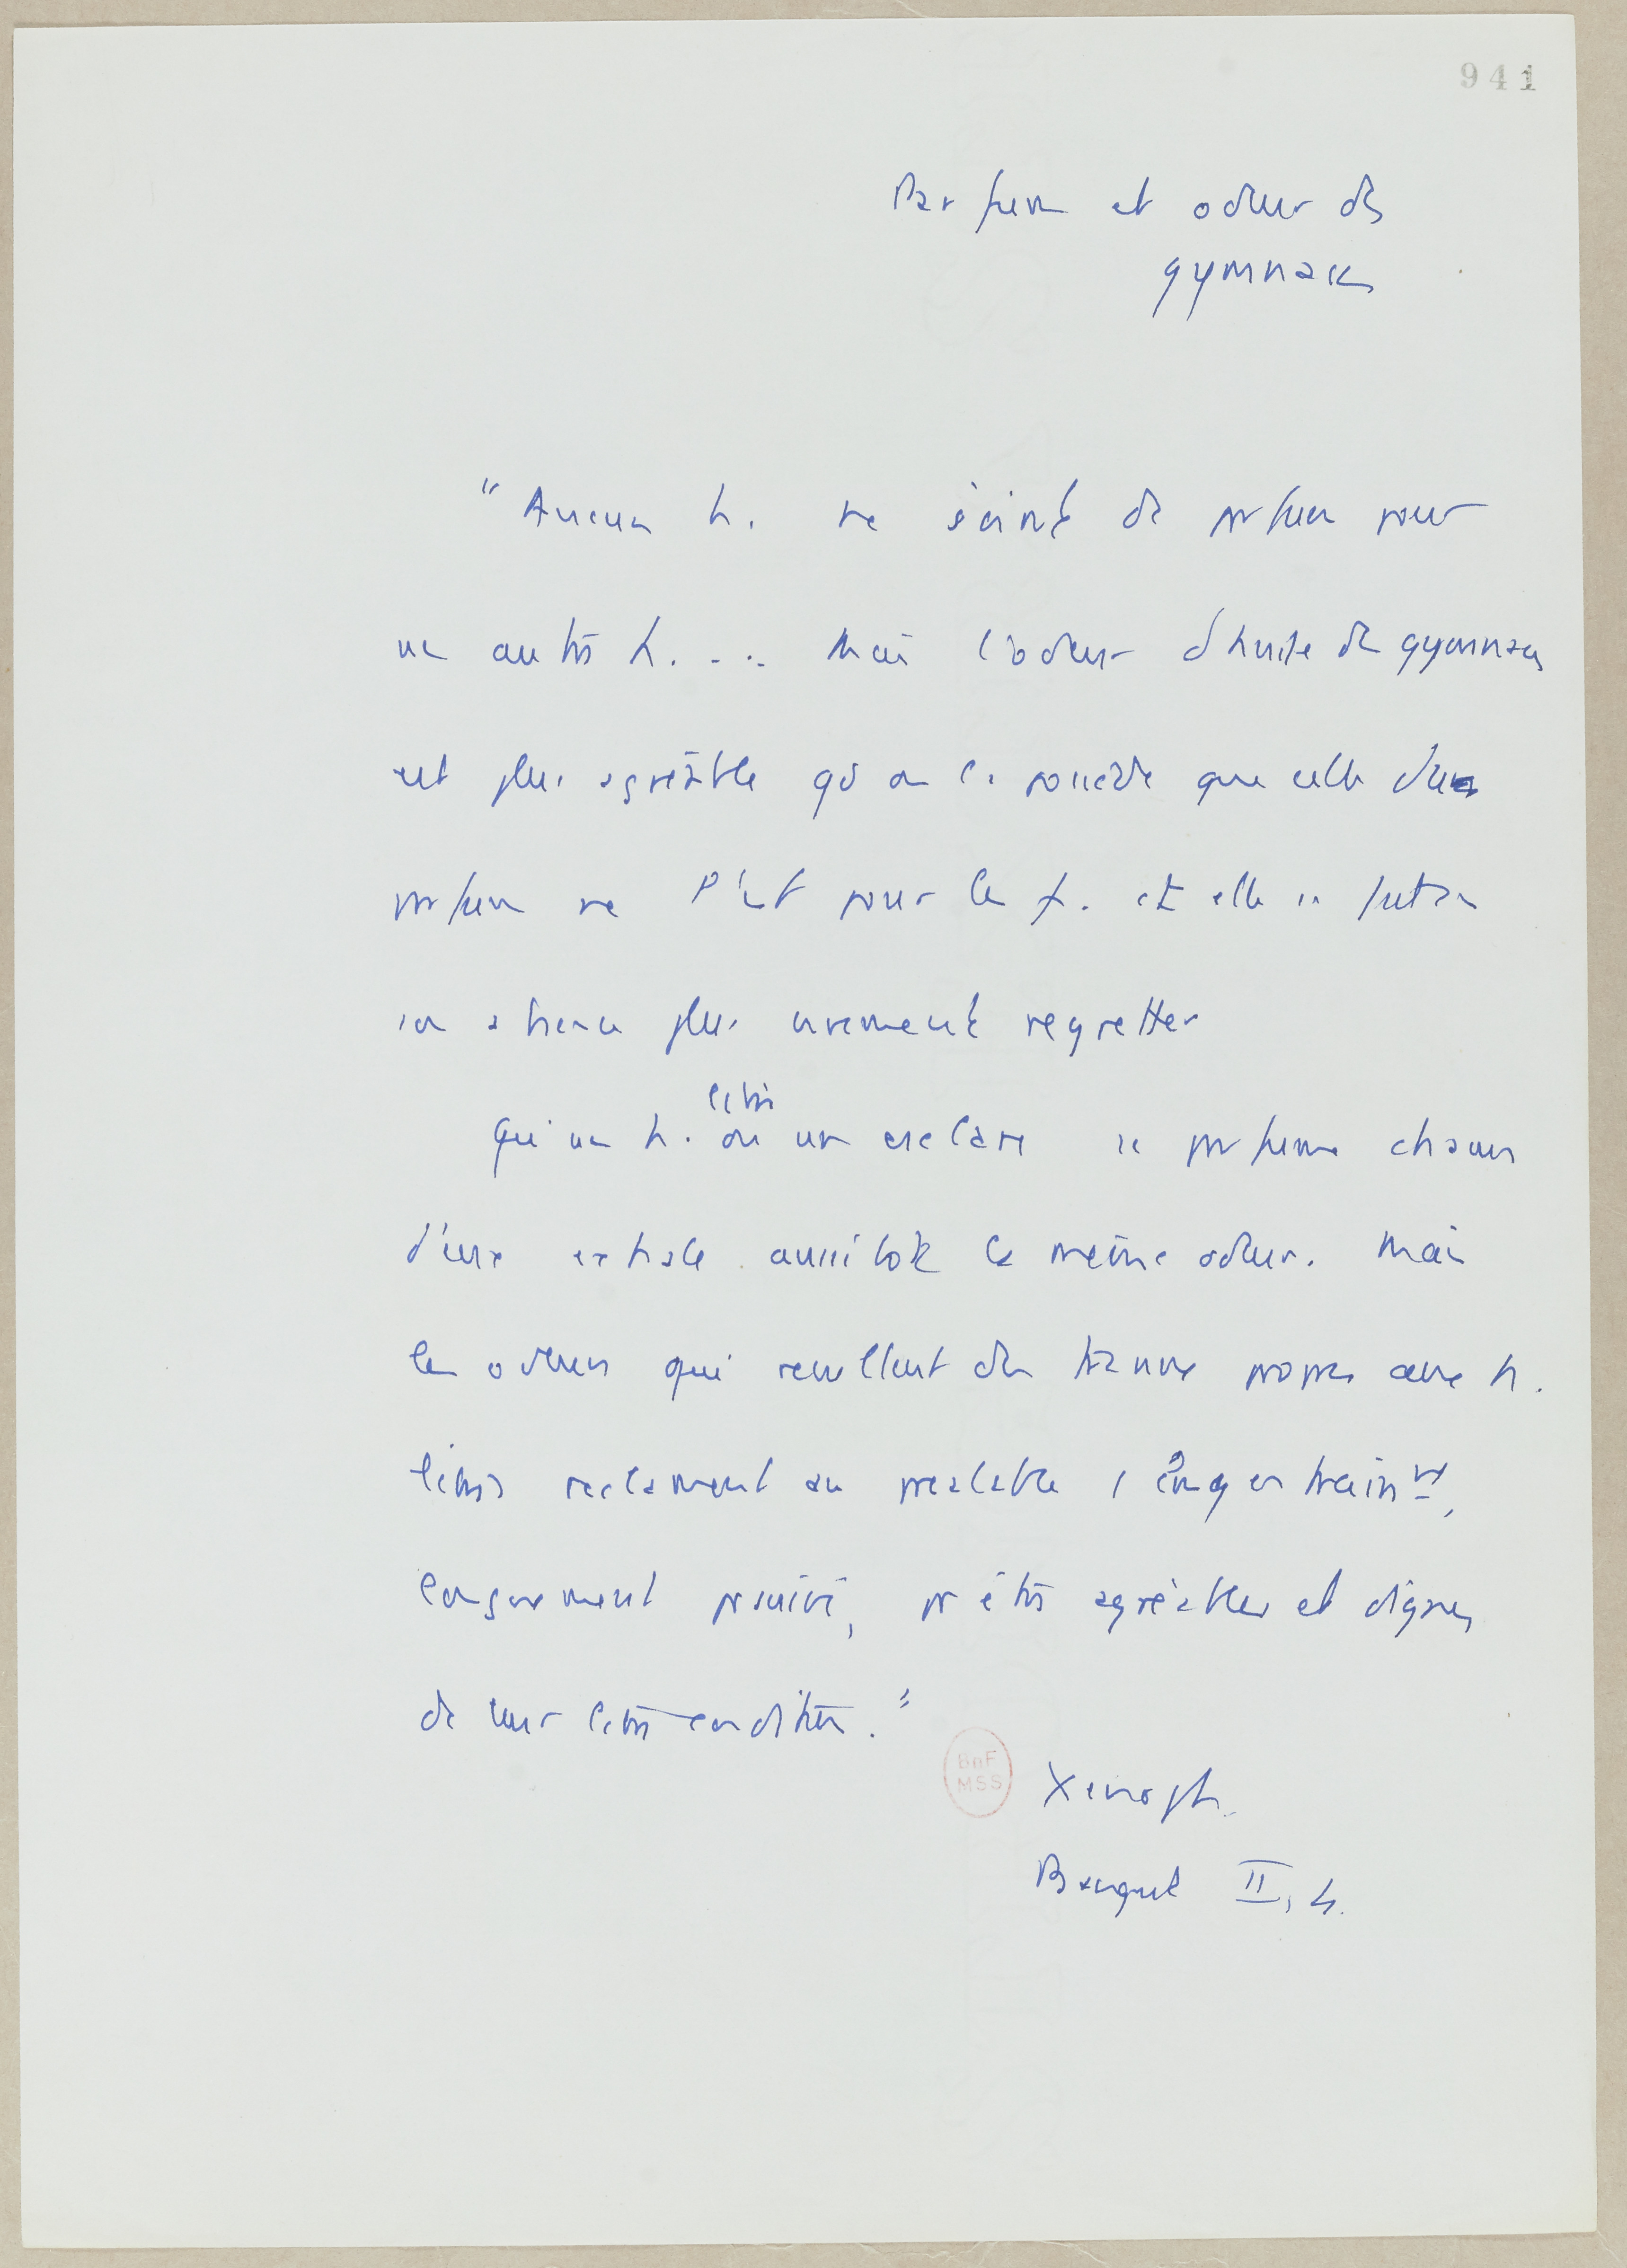 941
Parfum et odeur des
gymnases
"Aucun h. ne s'oint de parfum pour
un autre h. ... Mais l'odeur d'huile des gymnases
est plus agréable qd on la possède que celle d'un
parfum ne l'est pour les f. et elle se fait en
son absence plus vivement regretter
Qu'un h. libre ou un esclave se parfume chacun
d'eux exhale aussitôt la même odeur. Mais
les odeurs qui resultent des travaux propres aux h.
libres reclament au prealable 1 long entraint,
longuement poursuivi, pr être agréables et dignes
de leur libre condition."
Xenoph.
Banquet II, 4.
BnF
MSS